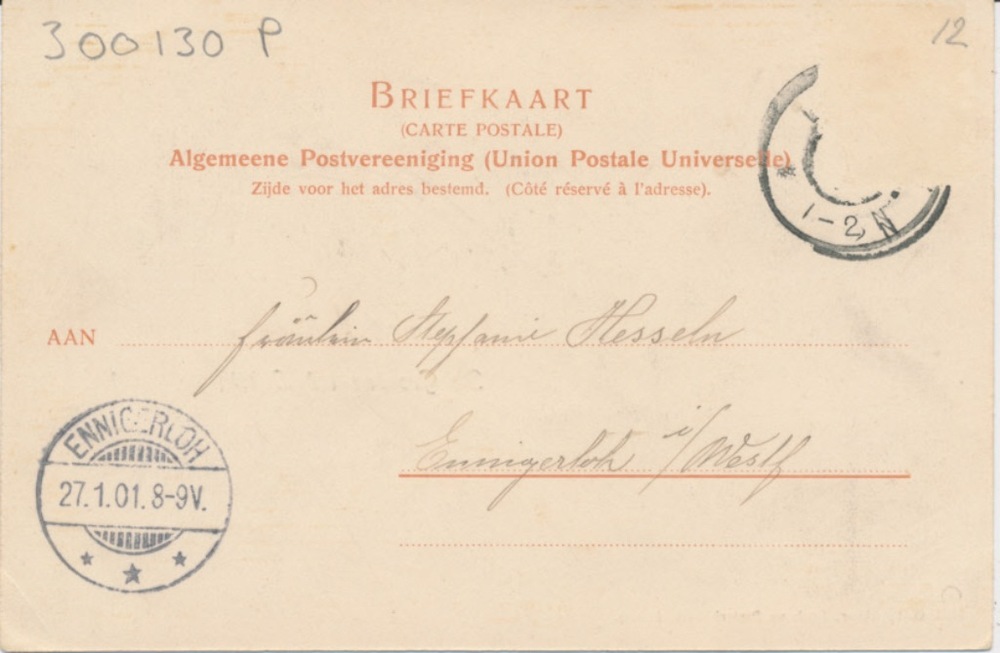 300130 P
12
BRIEFKAART
(CARTE POSTALE)
Algemeene Postvereeniging (Union Postale Universelle)
Zijde voor het adres bestemd. (Côté réservé à l'adresse).
1-2 N
AAN Fräulein Stephanie Hesseln
Ennigerloh i/Westf
ENNIGERLOH
27.1.01.8-9V.